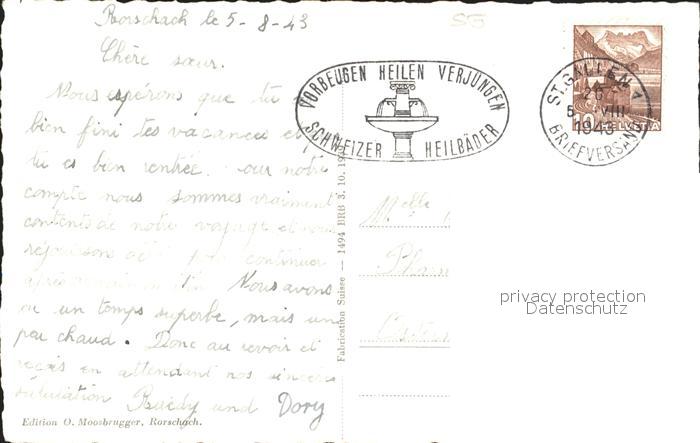 Rorschach le 5-8-43
Chère sœur.
Nous espérons que tu
bien fini tes vacances et
tu es bien rentrée. our notre
compte nous sommes vraiment
contents de notre voyage et nous
réjouisson continuer
après Nous avons
eu un temps superbe, mais un
peu chaud. Donc au revoir et
reçois en attendant nos sincères
salutation Ruedy und Dory
Edition O. Moosbrugger, Rorschach.
Fabrication Suisse — 1494 BRB 3. 10. 19
VORBEUGEN HEILEN VERJÜNGEN
SCHWEIZER HEILBÄDER
ST. GALLEN 1
5 VIII
1943
BRIEFVERSAND
10 HELVETIA
Melle
privacy protection
Datenschutz